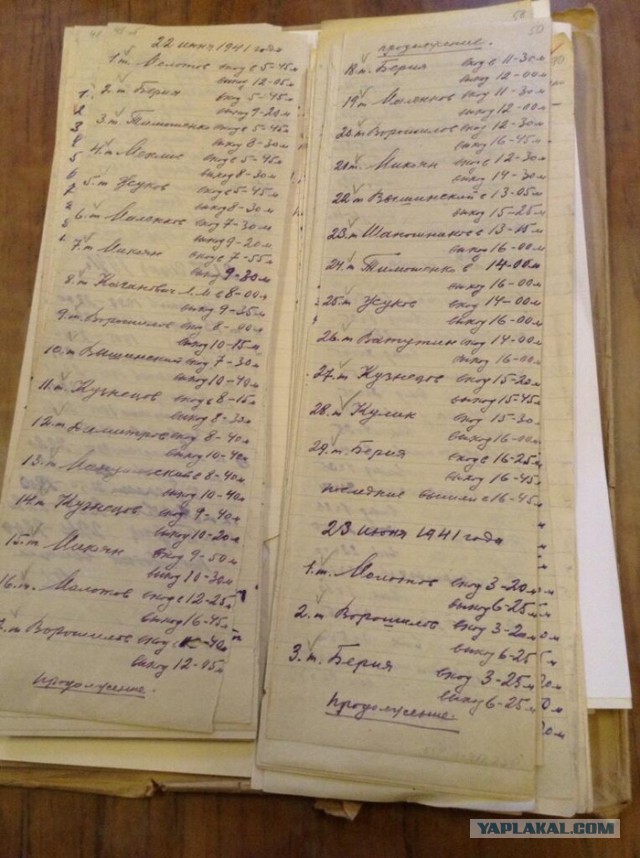 22 июня 1941 года
1. т. Молотов вход в 5-45м
выход 12-05м
2. т. Берия вход 5-45м
выход 9-20м
3. т. Тимошенко вход в 5-45м
выход 8-30м
4. т. Мехлис вход в 5-45м
выход 8-30м
5. т. Жуков вход в 5-45м
выход 8-30м
6. т. Маленков вход 7-30м
выход 9-20м
7. т. Микоян вход в 7-55м
выход 9-30м
8. т. Каганович Л.М. в 8-00м
выход 9-35м
9. т. Ворошилов вход 8-00м
выход 10-15м
10. т. Вышинский вход 7-30м
выход 10-40м
11. т. Кузнецов вход в 8-15м
выход 8-30м
12. т. Димитров вход 8-40м
выход 10-40м
13. т. в 8-40м
выход 10-40м
14. т Кузнецов вход 9-40м
выход 10-20м
15. т. Микоян вход 9-50м
выход 10-30м
16. т. Молотов вход в 12-25м
выход 16-45м
т Ворошилов вход -40м
выход 12-05м
продолжение.
50
продолжение.
18. т. Берия вход в 11-30м
выход 12-00м
19. т Маленков вход 11-30м
выход 12-00м
20. т Ворошилов вход 12-30м
выход 16-45м
21. т. Микоян вход в 12-30м
выход 14-30м
22. т Вышинский в 13-05м
выход 15-25м
23. т Шапошников в 13-15м
выход 16-00м
24. т Тимошенко в 14-00м
выход 16-00м
25. т Жуков вход 14-00м
выход 16-00м
26. т Ватутин вход 14-00м
выход 16-00м
27. т Кузнецов вход 15-20м
выход 15-45м
28. т Кулик вход 15-30м
выход 16-00м
29. т. Берия вход в 16-25м
выход 16-45м
последние вышли в 16-45м
23 июня 1941 года
1. т. Молотов вход 3-20м
выход 6-25м
2. т Ворошилов вход 3-20м
выход 6-25
3. т. Берия вход 3-25м
выход 6-25м
продолжение.
YAPLAKAL.COM